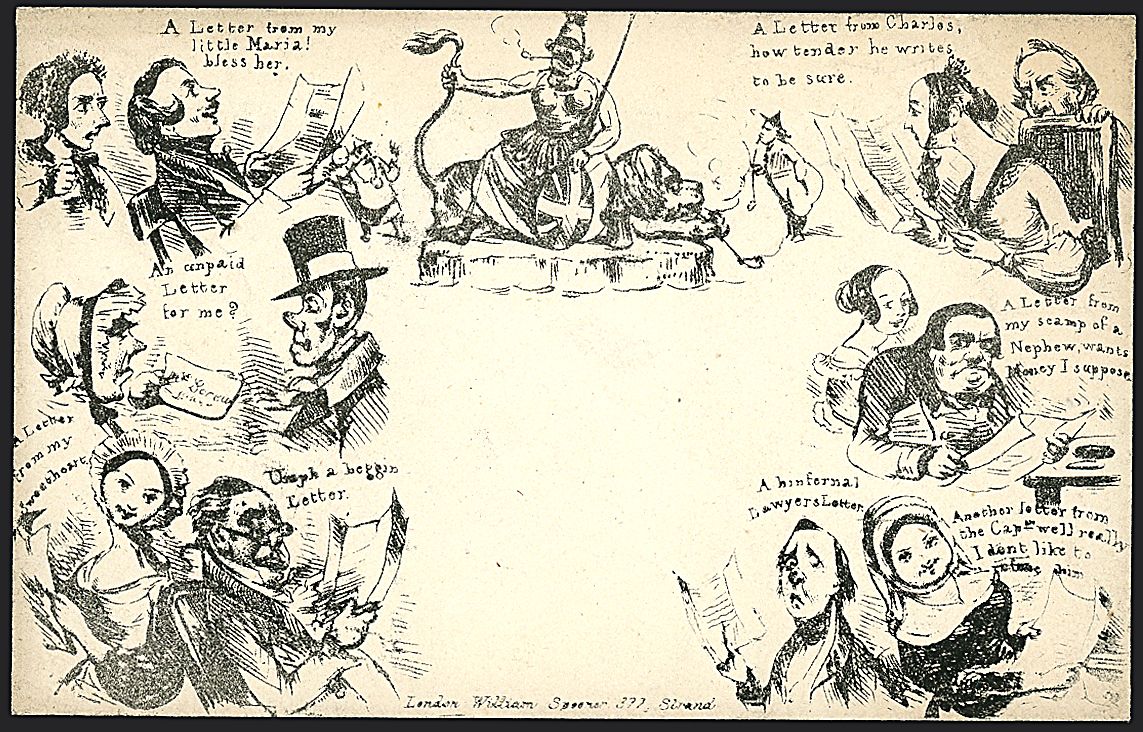 A Letter from my
little Maria!
bless her.
A Letter from Charles,
how tender he writes
to be sure.
An unpaid
Letter
for me?
A Letter from
my scamp of a
Nephew, wants
Money I suppose
A Letter
from my
Sweetheart
Umph a beggin
Letter.
A hinfernal
Lawyers Letter
Another letter from
the Capⁿ well really
I dont like to
him
London William Spooner 377, Strand